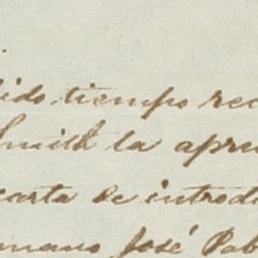 ido tiempo rec
Smith la apre
carta de introd
mano José Pab